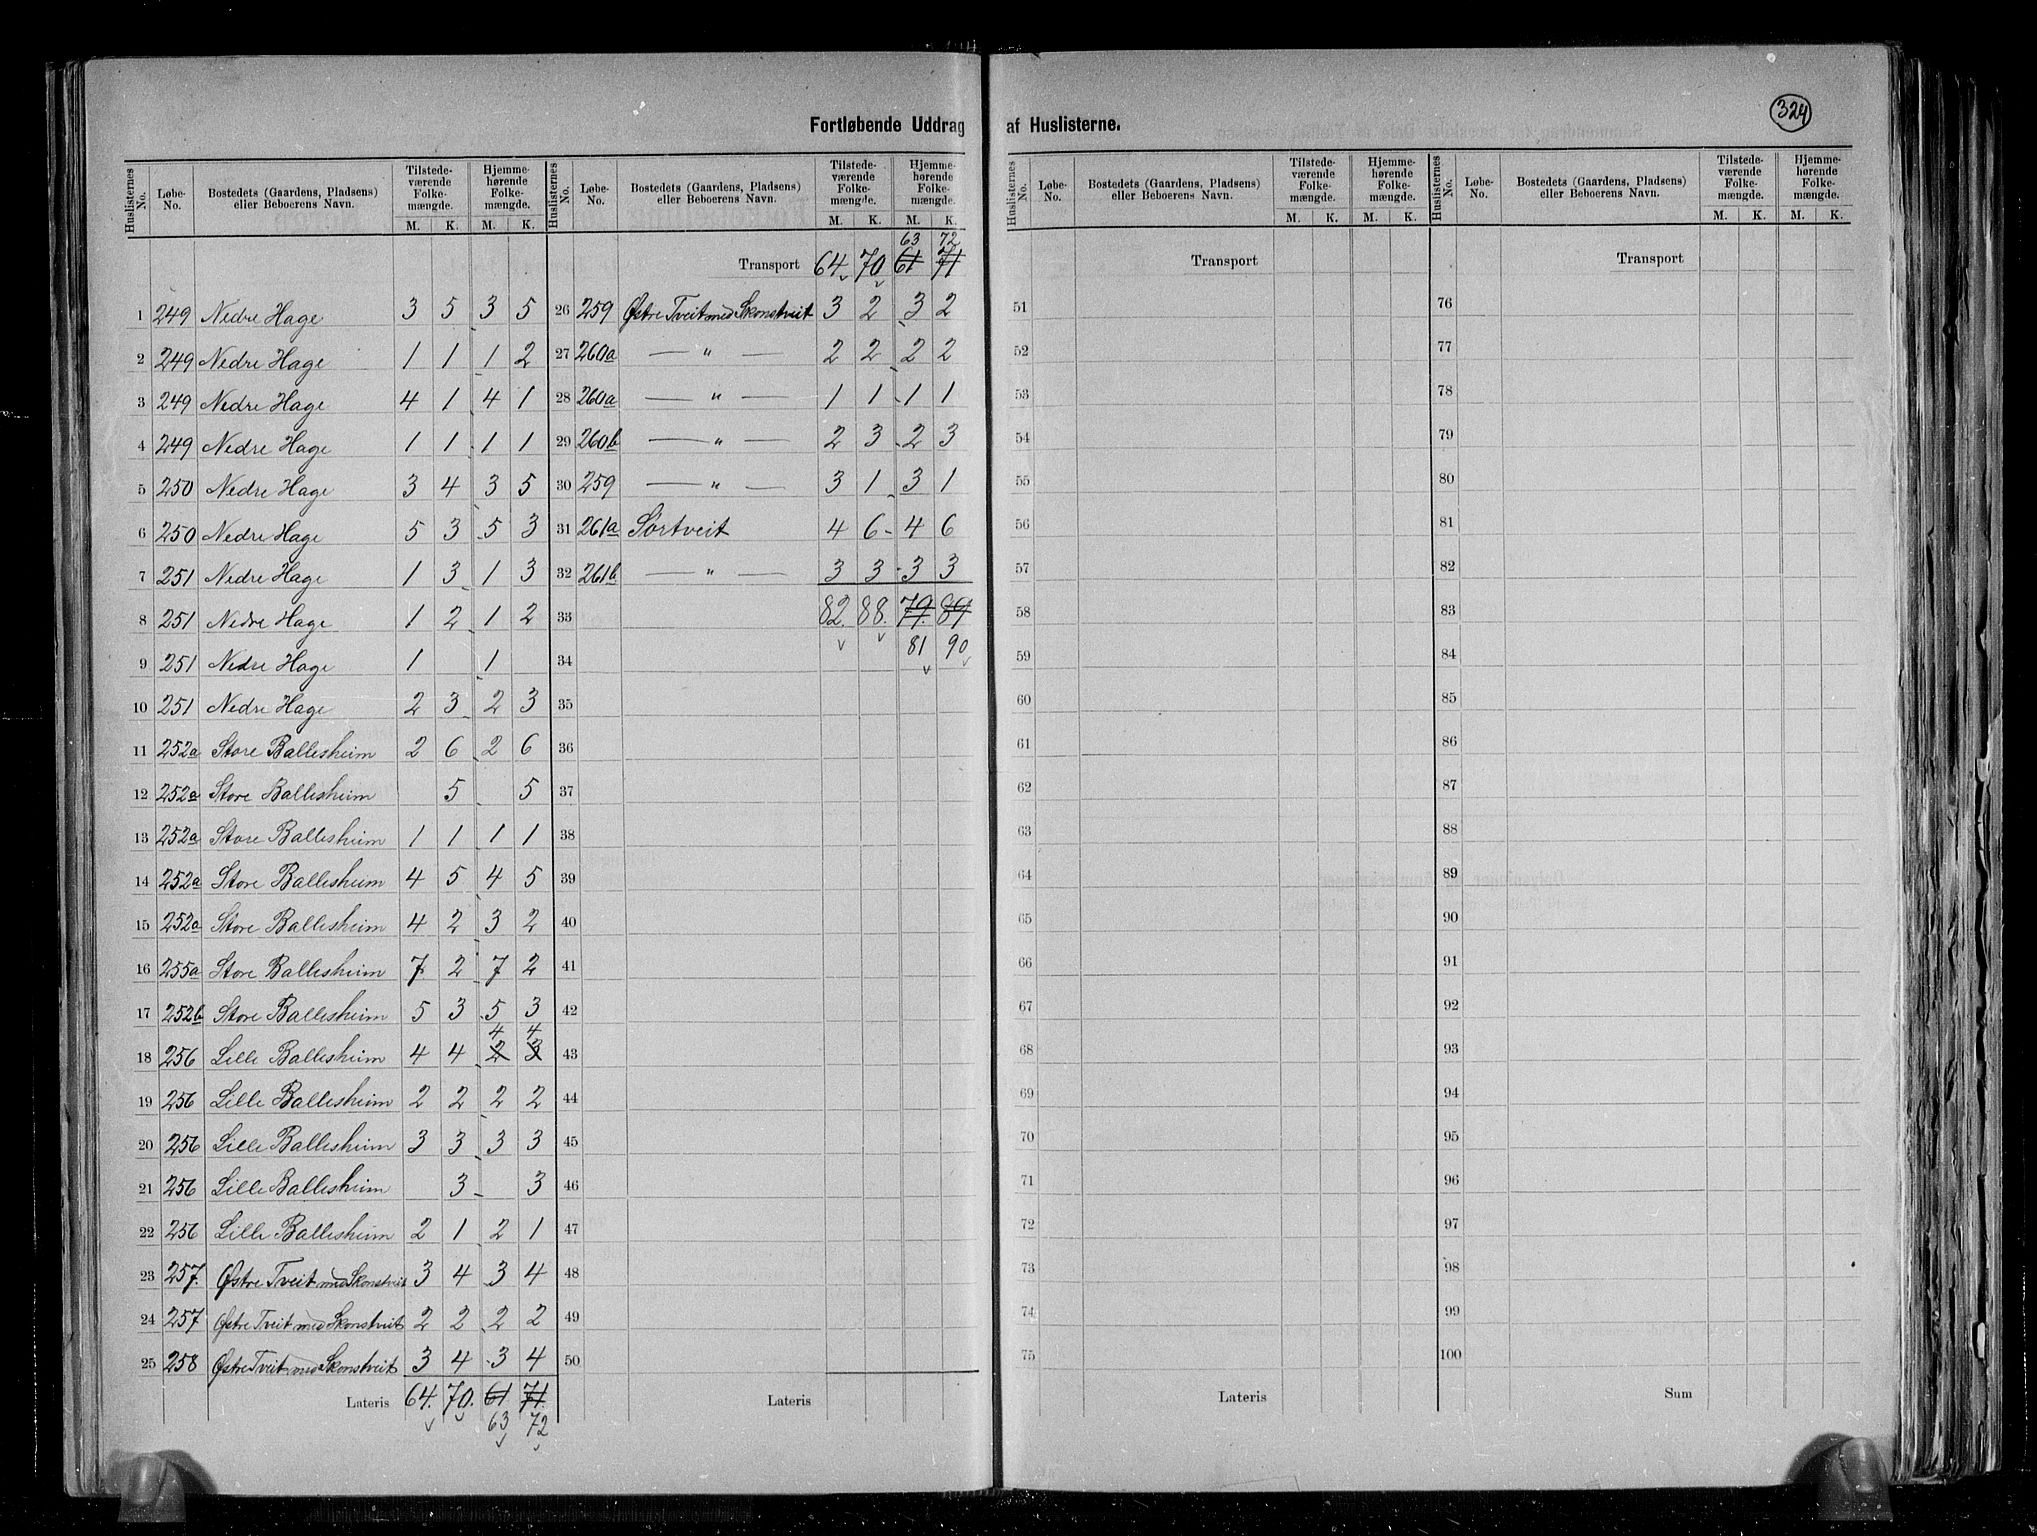 324
Fortløbende Uddrag af Huslisterne.
Huslisternes No. Løbe-No. Bostedets (Gaardens, Pladsens) eller Beboerens Navn. Tilstede-værende Folke-mængde. M. K. Hjemme-hørende Folke-mængde. M. K.
1 249 Nedre Hage 3 5 3 5
2 249 Nedre Hage 1 1 1 2
3 249 Nedre Hage 4 1 4 1
4 249 Nedre Hage 1 1 1 1
5 250 Nedre Hage 3 4 3 5
6 250 Nedre Hage 5 3 5 3
7 251 Nedre Hage 1 3 1 3
8 251 Nedre Hage 1 2 1 2
9 251 Nedre Hage 1 1
10 251 Nedre Hage 2 3 2 3
11 252a Store Ballesheim 2 6 2 6
12 252a Store Ballesheim 5 5
13 252a Store Ballesheim 1 1 1 1
14 252a Store Ballesheim 4 5 4 5
15 252a Store Ballesheim 4 2 3 2
16 255a Store Ballesheim 7 2 7 2
17 252b Store Ballesheim 5 3 5 3
4 4
18 256 Lille Ballesheim 4 4 2 3
19 256 Lille Ballesheim 2 2 2 2
20 256 Lille Ballesheim 3 3 3 3
21 256 Lille Ballesheim 3 3
22 256 Lille Ballesheim 2 1 2 1
23 257. Østre Tveit med Skonstveit 3 4 3 4
24 257 Østre Tveit med Skonstveit 2 2 2 2
25 258 Østre Tveit med Skonstveit 3 4 3 4
Lateris 64. 70. 61 71
63 72
Huslisternes No. Løbe-No. Bostedets (Gaardens, Pladsens) eller Beboerens Navn. Tilstede-værende Folke-mængde. M. K. Hjemme-hørende Folke-mængde. M. K.
63 72
Transport 64 70 61 71
26 259 Østre Tveit med Skonstveit 3 2 3 2
27 260a — " — 2 2 2 2
28 260a — " — 1 1 1 1
29 260b — " — 2 3 2 3
30 259 — " — 3 1 3 1
31 261a Sørtveit 4 6 4 6
32 261b — " — 3 3 3 3
33 82. 88. 79. 89
81 90
34
35
36
37
38
39
40
41
42
43
44
45
46
47
48
49
50
Lateris
Huslisternes No. Løbe-No. Bostedets (Gaardens, Pladsens) eller Beboerens Navn. Tilstede-værende Folke-mængde. M. K. Hjemme-hørende Folke-mængde. M. K.
Transport
51
52
53
54
55
56
57
58
59
60
61
62
63
64
65
66
67
68
69
70
71
72
73
74
75
Lateris
Huslisternes No. Løbe-No. Bostedets (Gaardens, Pladsens) eller Beboerens Navn. Tilstede-værende Folke-mængde. M. K. Hjemme-hørende Folke-mængde. M. K.
Transport
76
77
78
79
80
81
82
83
84
85
86
87
88
89
90
91
92
93
94
95
96
97
98
99
100
Sum